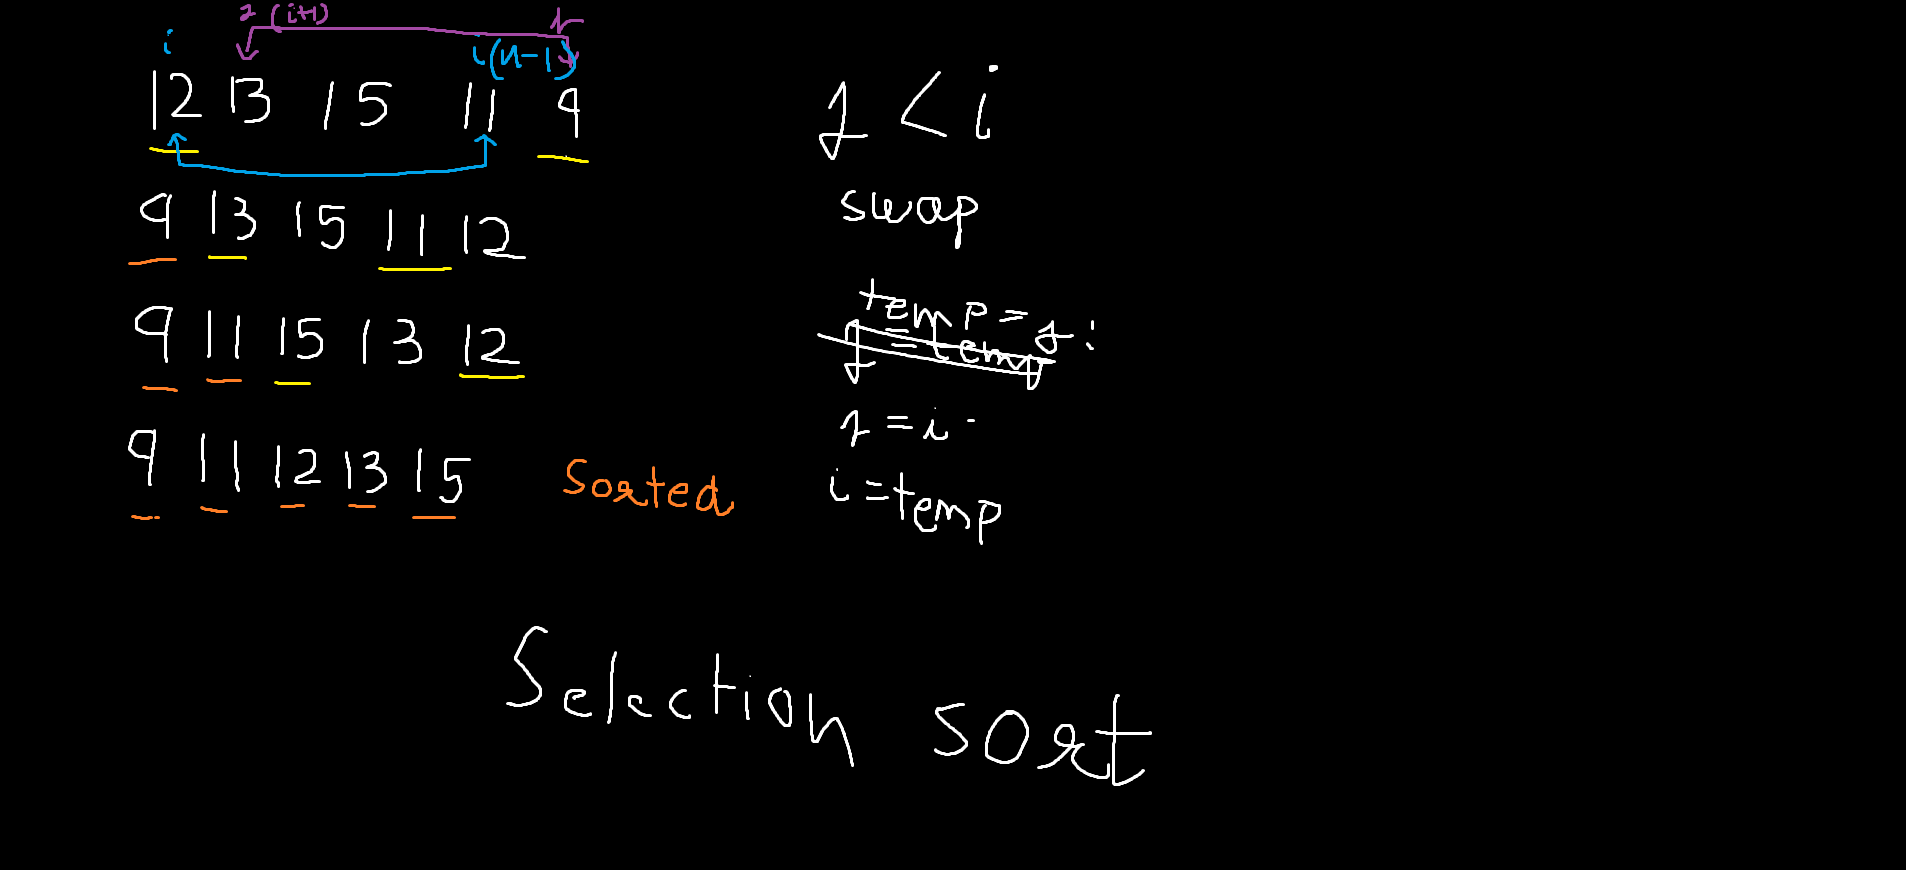 j (i+1) n
i i(n-1)
12 13 15 11 9
9 13 15 11 12
9 11 15 13 12
9 11 12 13 15 Sorted
j < i
swap
temp = j i
j = temp
j = i
i = temp
Selection sort